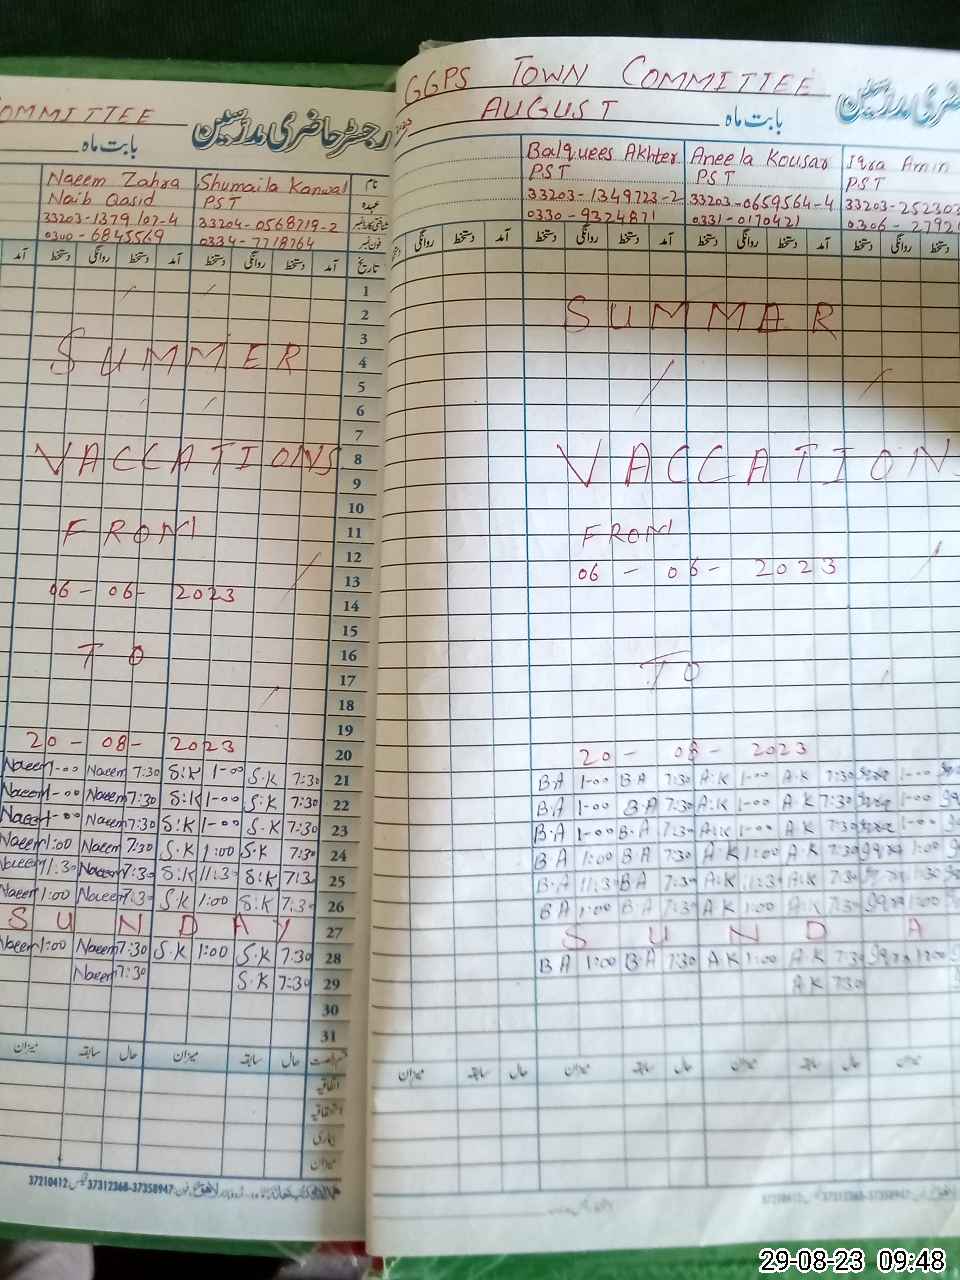 COMMITTEE
رجسٹر حاضری مدرسین
بابت ماہ
Naeem Zahra
Naib Qasid
33203-1379107-4
0300-6845569
Shumaila Kanwal
PST
33204-0568719-2
0334-7718764
نام
عہدہ
فون نمبر
آمد روانگی دستخط آمد دستخط روانگی دستخط آمد تاریخ
1
2
3
SUMMER 4
5
6
7
VACCATIONS 8
9
10
FROM 11
12
06-06-2023 13
14
15
TO 16
17
18
19
20-08-2023 20
Naeem 1-00 Naeem 7:30 S:K 1-00 S.K 7:30 21
Naeem 1-00 Naeem 7:30 S:K 1-00 S.K 7:30 22
Naeem 1-00 Naeem 7:30 S:K 1-00 S.K 7:30 23
Naeem 1:00 Naeem 7:30 S.K 1:00 S.K 7:30 24
Naeem 11:30 Naeem 7:30 S:K 11:30 S:K 7:30 25
Naeem 1:00 Naeem 7:30 S.K 1:00 S:K 7:30 26
SUNDAY 27
Naeem 1:00 Naeem 7:30 S.K 1:00 S.K 7:30 28
Naeem 7:30 S.K 7:30 29
30
31
میزان سابقہ حال میزان سابقہ حال
اتفاقیہ
استحقاقیہ
بیماری
میزان
37210412 37312368-37358947
GGPS TOWN COMMITTEE
AUGUST
بابت ماہ
حاضری مدرسین
Balquees Akhter
PST
33203-1349723-2
0330-9324871
Aneela Kousar
PST
33203-0659564-4
0331-0170421
Iqra Amin
PST
33203-252303
0306-2792
روانگی دستخط آمد دستخط روانگی دستخط آمد دستخط روانگی دستخط آمد دستخط روانگی دستخط
SUMMER
VACCATIONS
FROM
06-06-2023
TO
20-08-2023
B.A 1-00 B.A 7:30 A.K 1-00 A.K 7:30 Iqra 1-00
B.A 1-00 B.A 7:30 A.K 1-00 A.K 7:30 Iqra 1-00
B.A 1-00 B.A 7:30 A.K 1-00 A.K 7:30 Iqra 1-00
B.A 1:00 B.A 7:30 A.K 1:00 A.K 7:30 Iqra 1:00
B.A 11:30 B.A 7:30 A.K 11:30 A.K 7:30 Iqra 11:30
B.A 1:00 B.A 7:30 A.K 1:00 A.K 7:30 Iqra 1:00
SUNDA
B.A 1:00 B.A 7:30 A.K 1:00 A.K 7:30 Iqra 1:00
A.K 7:30
میزان سابقہ حال میزان سابقہ حال میزان سابقہ حال میزان
29-08-23 09:48